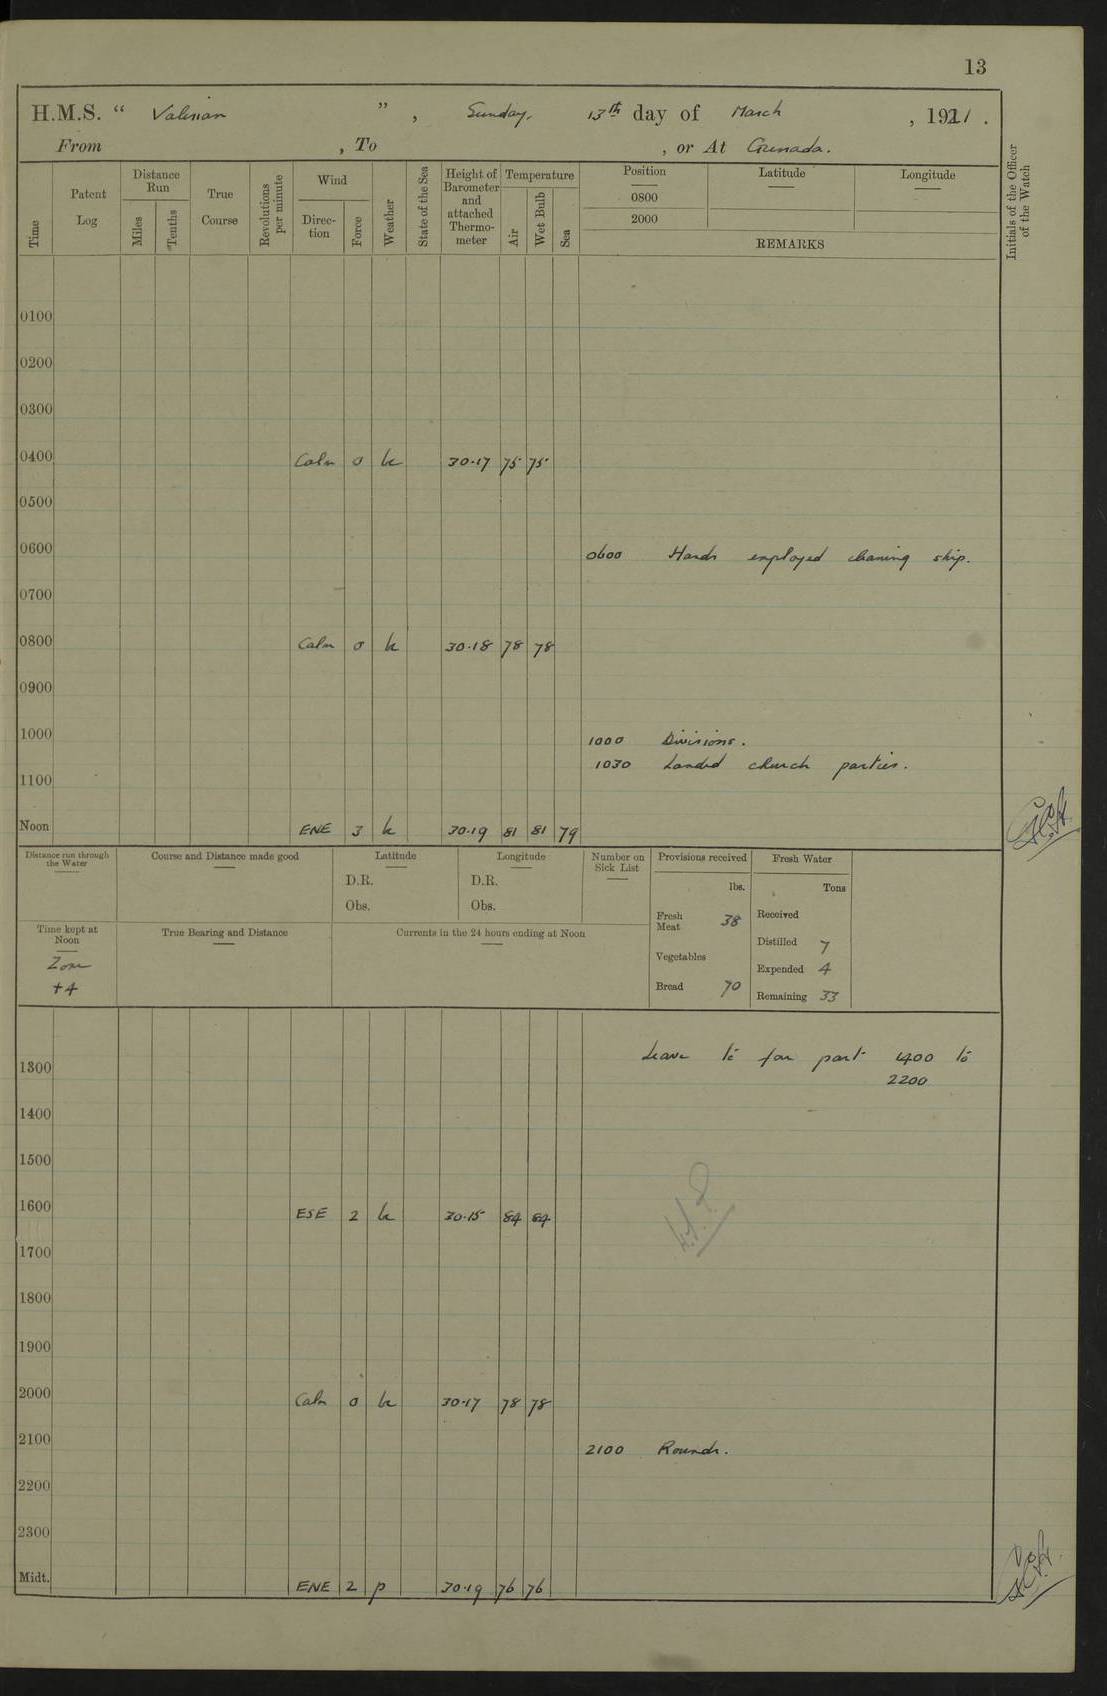 13
H.M.S. “ Valerian ” , Sunday, 13th day of March , 1921 .
From , To , or At Grenada.
Time
Patent Log
Distance Run
Miles
Tenths
True Course
Revolutions per minute
Wind
Direc-tion
Force
Weather
State of the Sea
Height of Barometer and attached Thermo-meter
Temperature
Air
Wet Bulb
Sea
Position
0800
2000
Latitude
Longitude
REMARKS
Initials of the Officer of the Watch
0100
0200
0300
0400 Calm 0 bc 30·17 75 75
0500
0600 0600 Hands employed cleaning ship.
0700
0800 Calm 0 bc 30·18 78 78
0900
1000 1000 Divisions.
1030 Landed church parties.
1100
Noon ENE 3 bc 30·19 81 81 79
Distance run through the Water
Course and Distance made good
Latitude
D.R.
Obs.
Longitude
D.R.
Obs.
Number on Sick List
Provisions received
lbs.
Fresh Meat 38
Vegetables
Bread 70
Fresh Water
Tons
Received
Distilled 7
Expended 4
Remaining 33
Time kept at Noon
Zone
+4
True Bearing and Distance
Currents in the 24 hours ending at Noon
Leave to for part 1400 to
2200
1300
1400
1500
1600 ESE 2 bc 30·15 84 84
1700
1800
1900
2000 Calm 0 bc 30·17 78 78
2100 2100 Rounds.
2200
2300
Midt. ENE 2 p 30·19 76 76